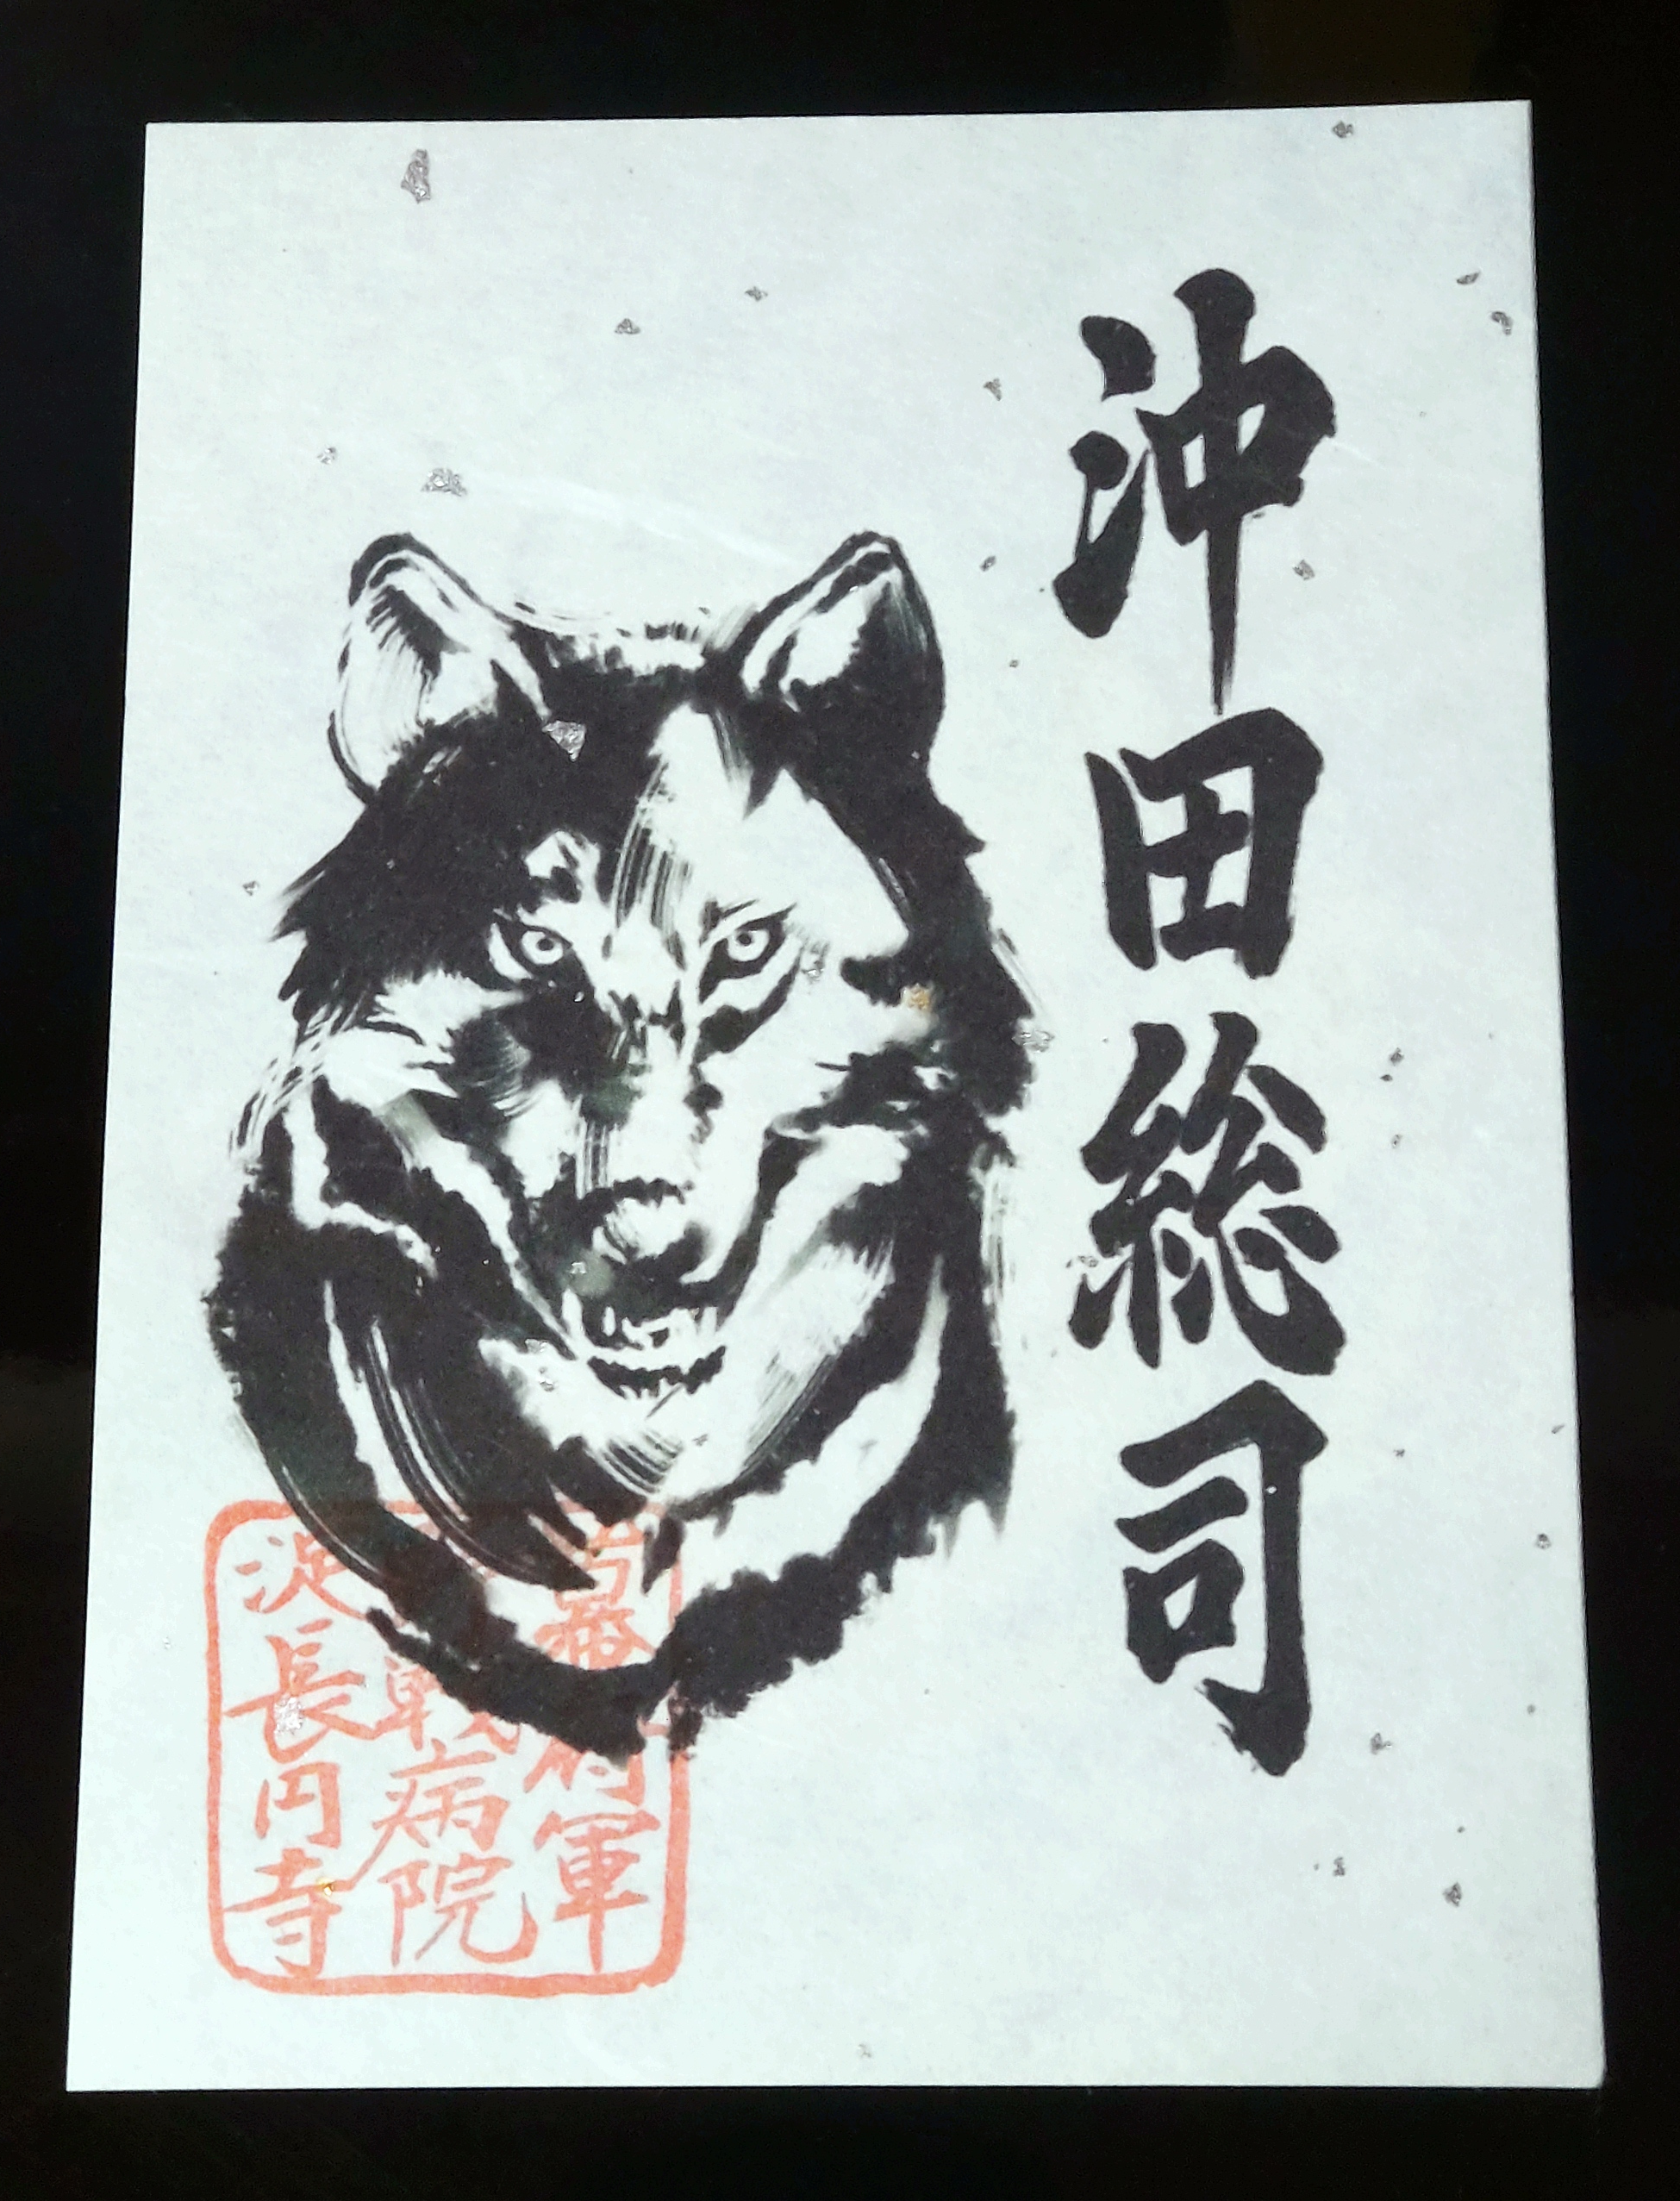 沖田総司
幕府軍
戰病院
淀長円寺